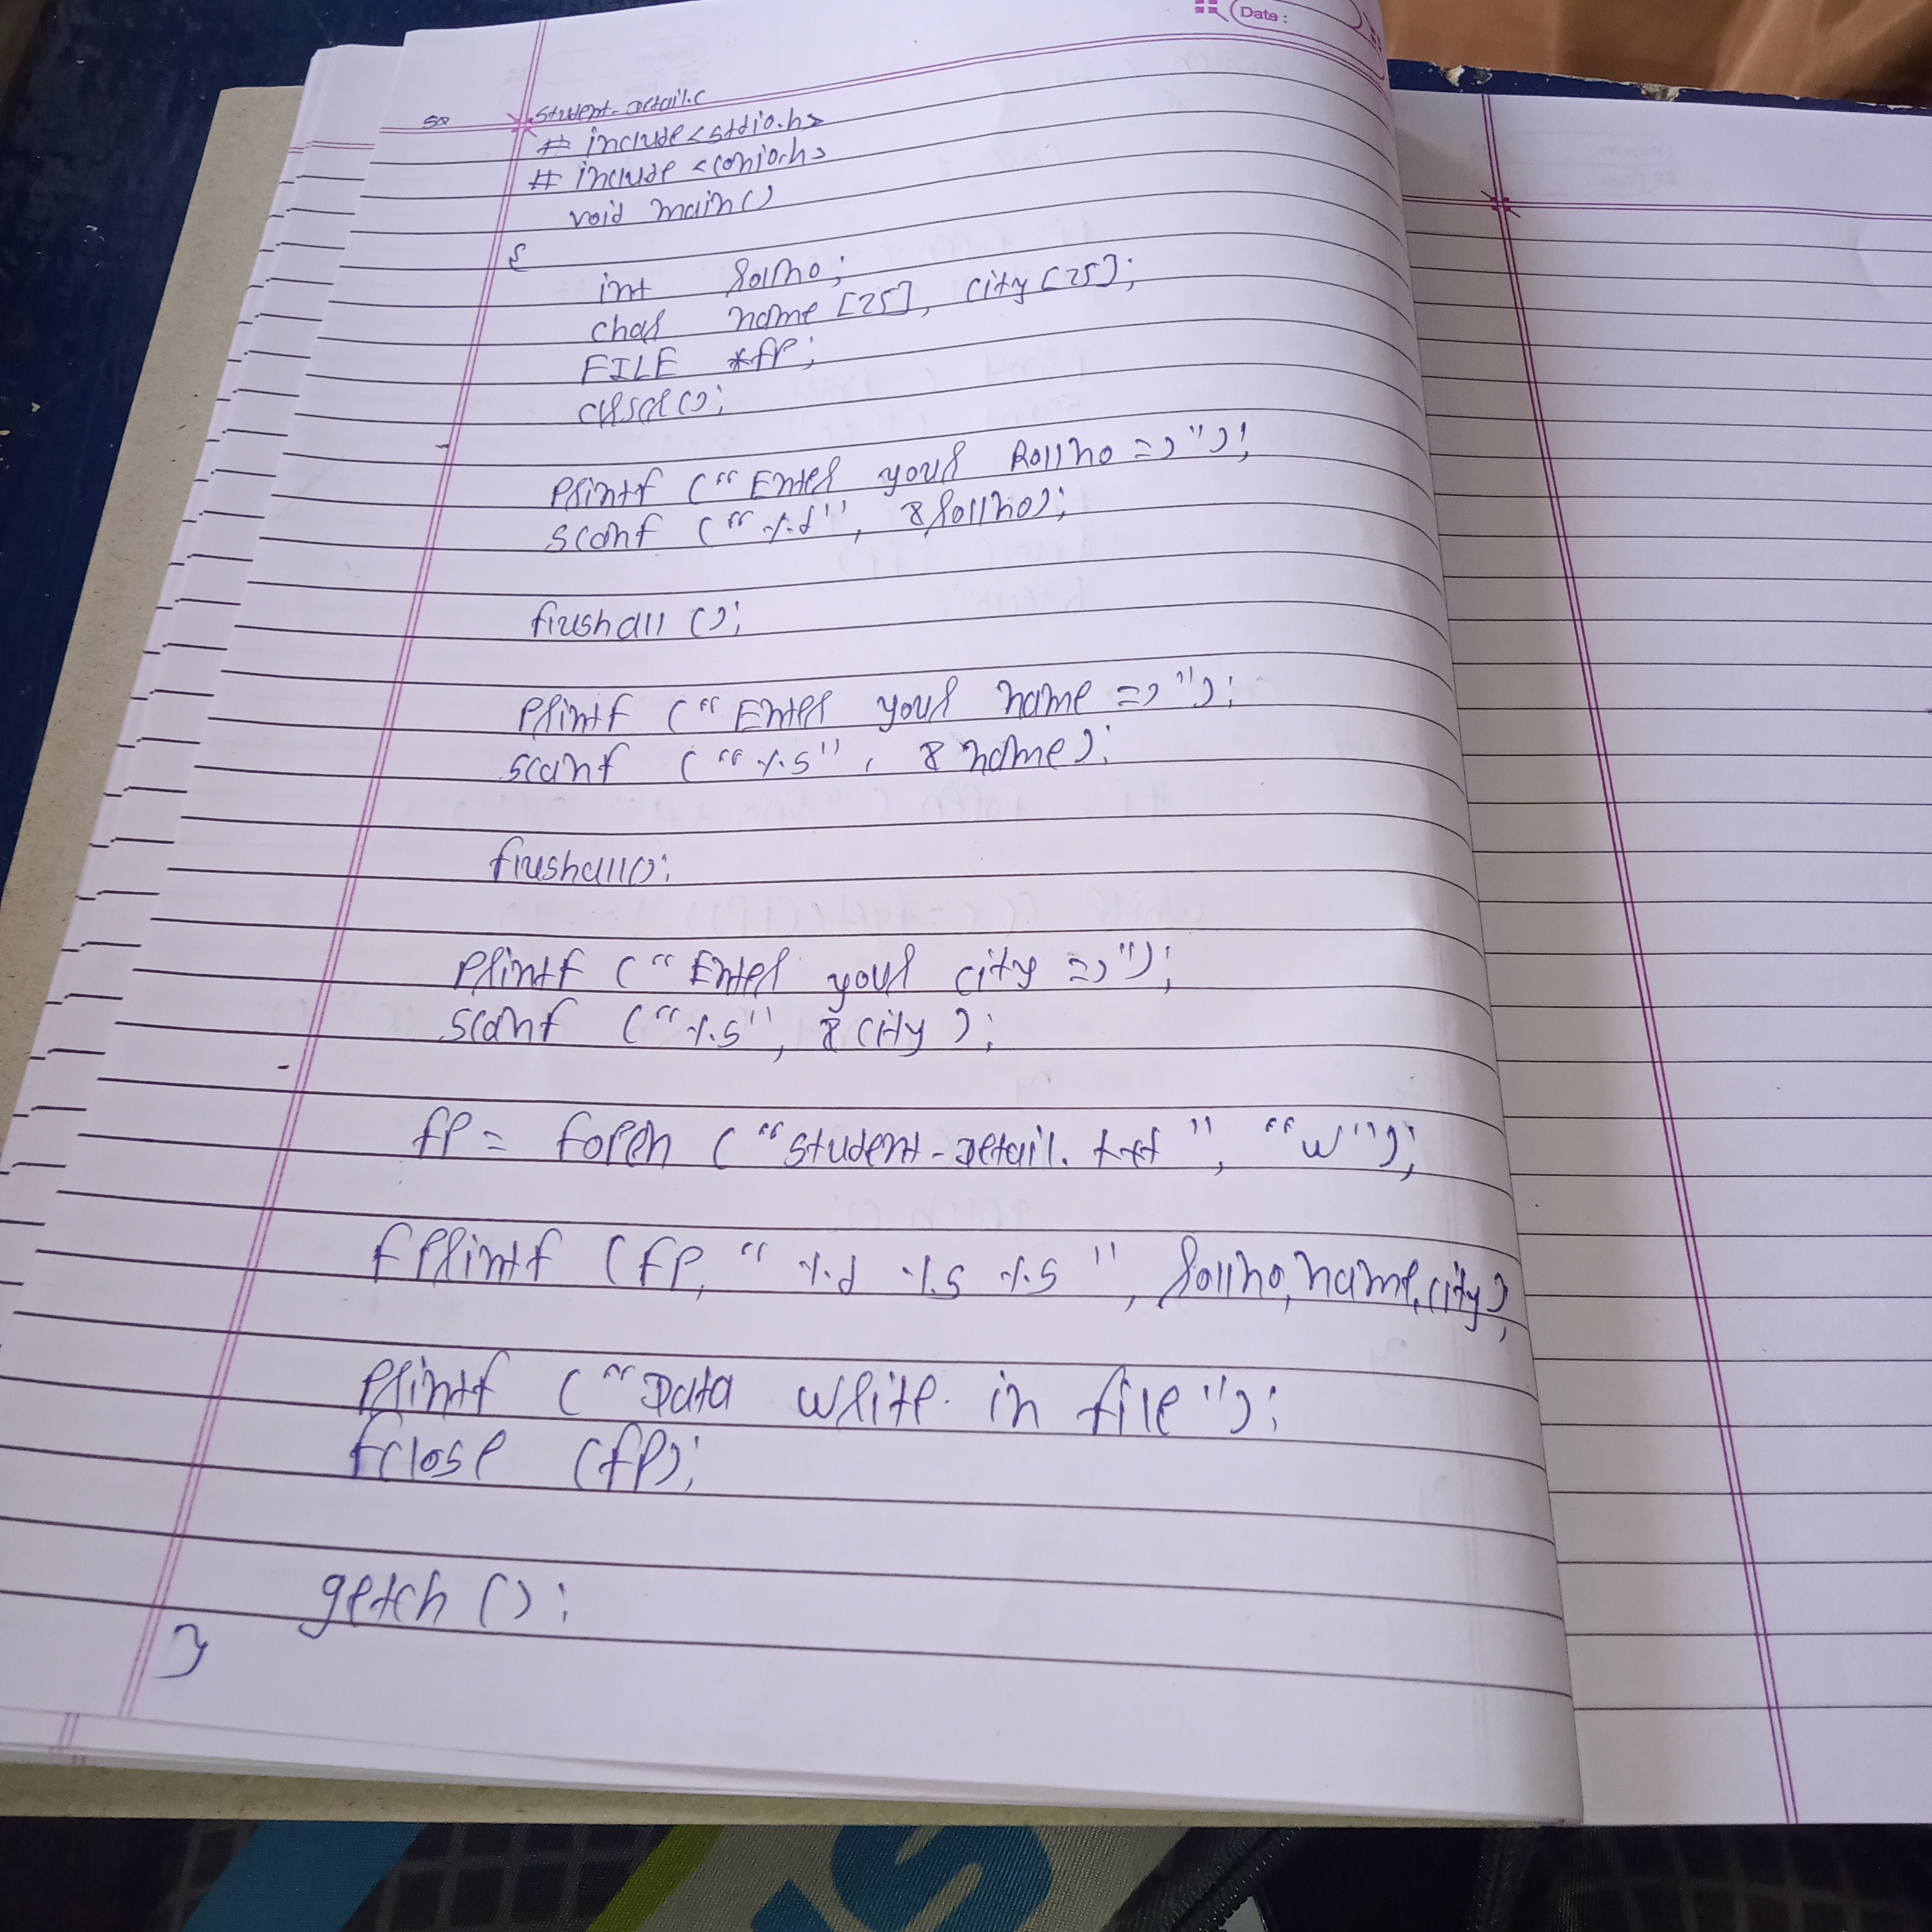 Date :
58 student-Detail.c
# include<stdio.h>
# include <conio.h>
void main()
{
int rollno;
char name [25], city [25];
FILE *fp;
clrscr();
printf ("Enter your Rollno =>");
scanf ("%d", &rollno);
flushall ();
printf ("Enter your name =>");
scanf ("%s", & name);
flushall();
printf ("Enter your city =>");
scanf ("%s", & city );
fp = fopen ("student-Detail.txt", "w");
fprintf (fp, "%d %s %s", rollno, name, city);
printf ("Data write in file");
fclose (fp);
getch ();
}